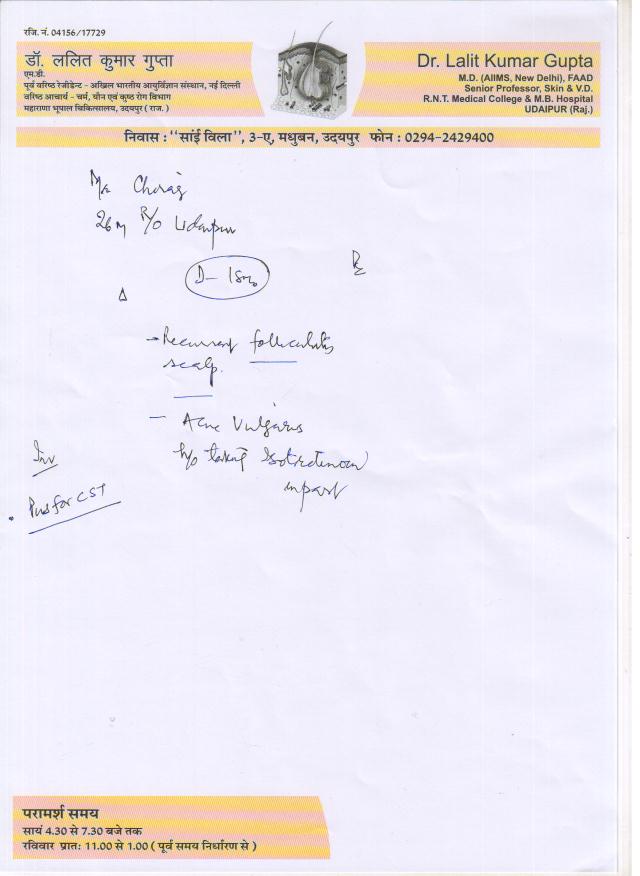 रजि. नं. 04156/17729
डॉ. ललित कुमार गुप्ता
एम.डी.
पूर्व वरिष्ठ रेजीडेन्ट - अखिल भारतीय आयुर्विज्ञान संस्थान, नई दिल्ली
वरिष्ठ आचार्य - चर्म, यौन एवं कुष्ठ रोग विभाग
महाराणा भूपाल चिकित्सालय, उदयपुर ( राज. )
Dr. Lalit Kumar Gupta
M.D. (AIIMS, New Delhi), FAAD
Senior Professor, Skin & V.D.
R.N.T. Medical College & M.B. Hospital
UDAIPUR (Raj.)
निवास : "सांई विला", 3-ए, मधुबन, उदयपुर फोन : 0294-2429400
Chirag
26 M R/o Udaipur
Rx
Δ
→ Recurrent folliculitis
scalp.
– Acne Vulgaris
h/o taking Isotretinoin
in past
Inv
• Pus for CST
परामर्श समय
सायं 4.30 से 7.30 बजे तक
रविवार प्रात: 11.00 से 1.00 ( पूर्व समय निर्धारण से )